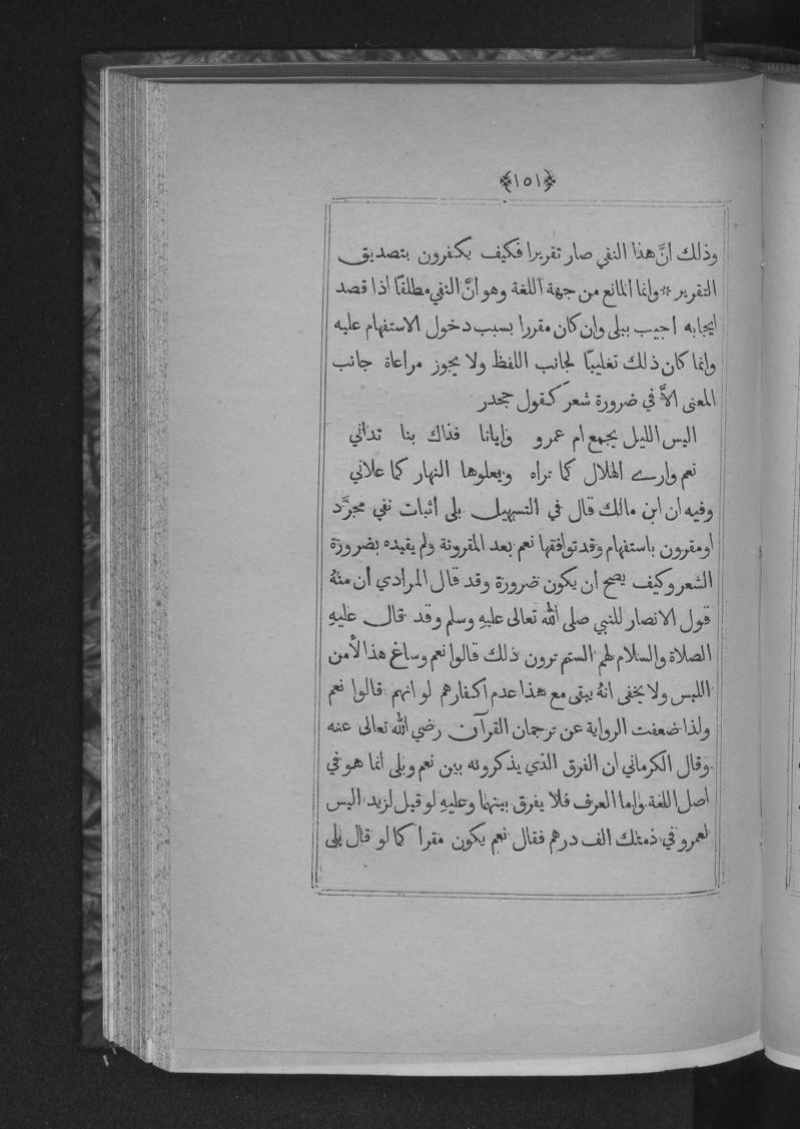 ﴿١٥١﴾
وذلك انَّ هذا النفي صار تقريرا فكيف يكفرون بتصديق
التقرير * وانما المانع من جهة اللغة وهو انَّ النفي مطلقًا اذا قصد
ايجابه اجيب ببلى وان كان مقررا بسبب دخول الاستفهام عليه
وانما كان ذلك تغليبًا لجانب اللفظ ولا يجوز مراعاة جانب
المعنى الاَّ في ضرورة شعر كقول جحدر
اليس الليل يجمع ام عمرو وايانا فذاك بنا تداني
نعم وارے الهلال كما تراه ويعلوها النهار كما علاني
وفيه ان ابن مالك قال في التسهيل بلى اثبات نفي مجرَّد
اومقرون باستفهام وقد توافقها نعم بعد المقرونة ولم يقيده بضرورة
الشعر وكيف يصح ان يكون ضرورة وقد قال المرادي ان منهُ
قول الانصار للنبي صلى الله تعالى عليهِ وسلم وقد قال عليهِ
الصلاة والسلام لهم الستم ترون ذلك قالوا نعم وساغ هذا لأمن
اللبس ولا يخفى انهُ يبقى مع هذا عدم اكفارهم لو انهم قالوا نعم
ولذا ضعفت الرواية عن ترجمان القرآن رضي الله تعالى عنه
وقال الكرماني ان الفرق الذي يذكرونه بين نعم وبلى انما هو في
اصل اللغة واما العرف فلا يفرق بينهما وعليهِ لو قيل لزيد اليس
لعمرو في ذمتك الف درهم فقال نعم يكون مقرا كما لو قال بلى